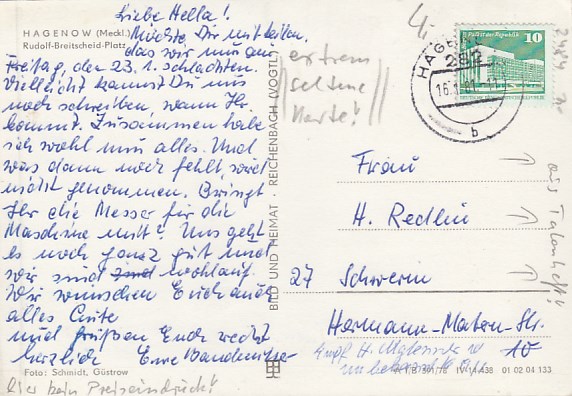 HAGENOW (Meckl.)
Rudolf-Breitscheid-Platz
Liebe Hella!
Möchte Dir mitteilen,
das wir nun am
Freitag, den 23.1. schlachten.
Vielleicht kannst Du uns
noch schreiben, wann Ihr
kommt. Zusammen habe
ich wohl nun alles. Und
was dann noch fehlt, wird
nicht genommen. Bringt
Ihr die Messer für die
Maschine mit? Uns geht
es noch ganz gut und
wir sind wohlauf.
Wir wünschen Euch auch
alles Gute
und grüßen Euch recht
herzlich Eure
Foto: Schmidt, Güstrow
hier kein Preiseindruck!
BILD UND HEIMAT · REICHENBACH (VOGTL)
extrem
seltene
Karte!
HAGENOW
282
b
Palast der Republik
10
Frau
H. Redlin
27 Schwerin
Hermann-Matern-Str.
10
IV-14-438 01 02 04 133